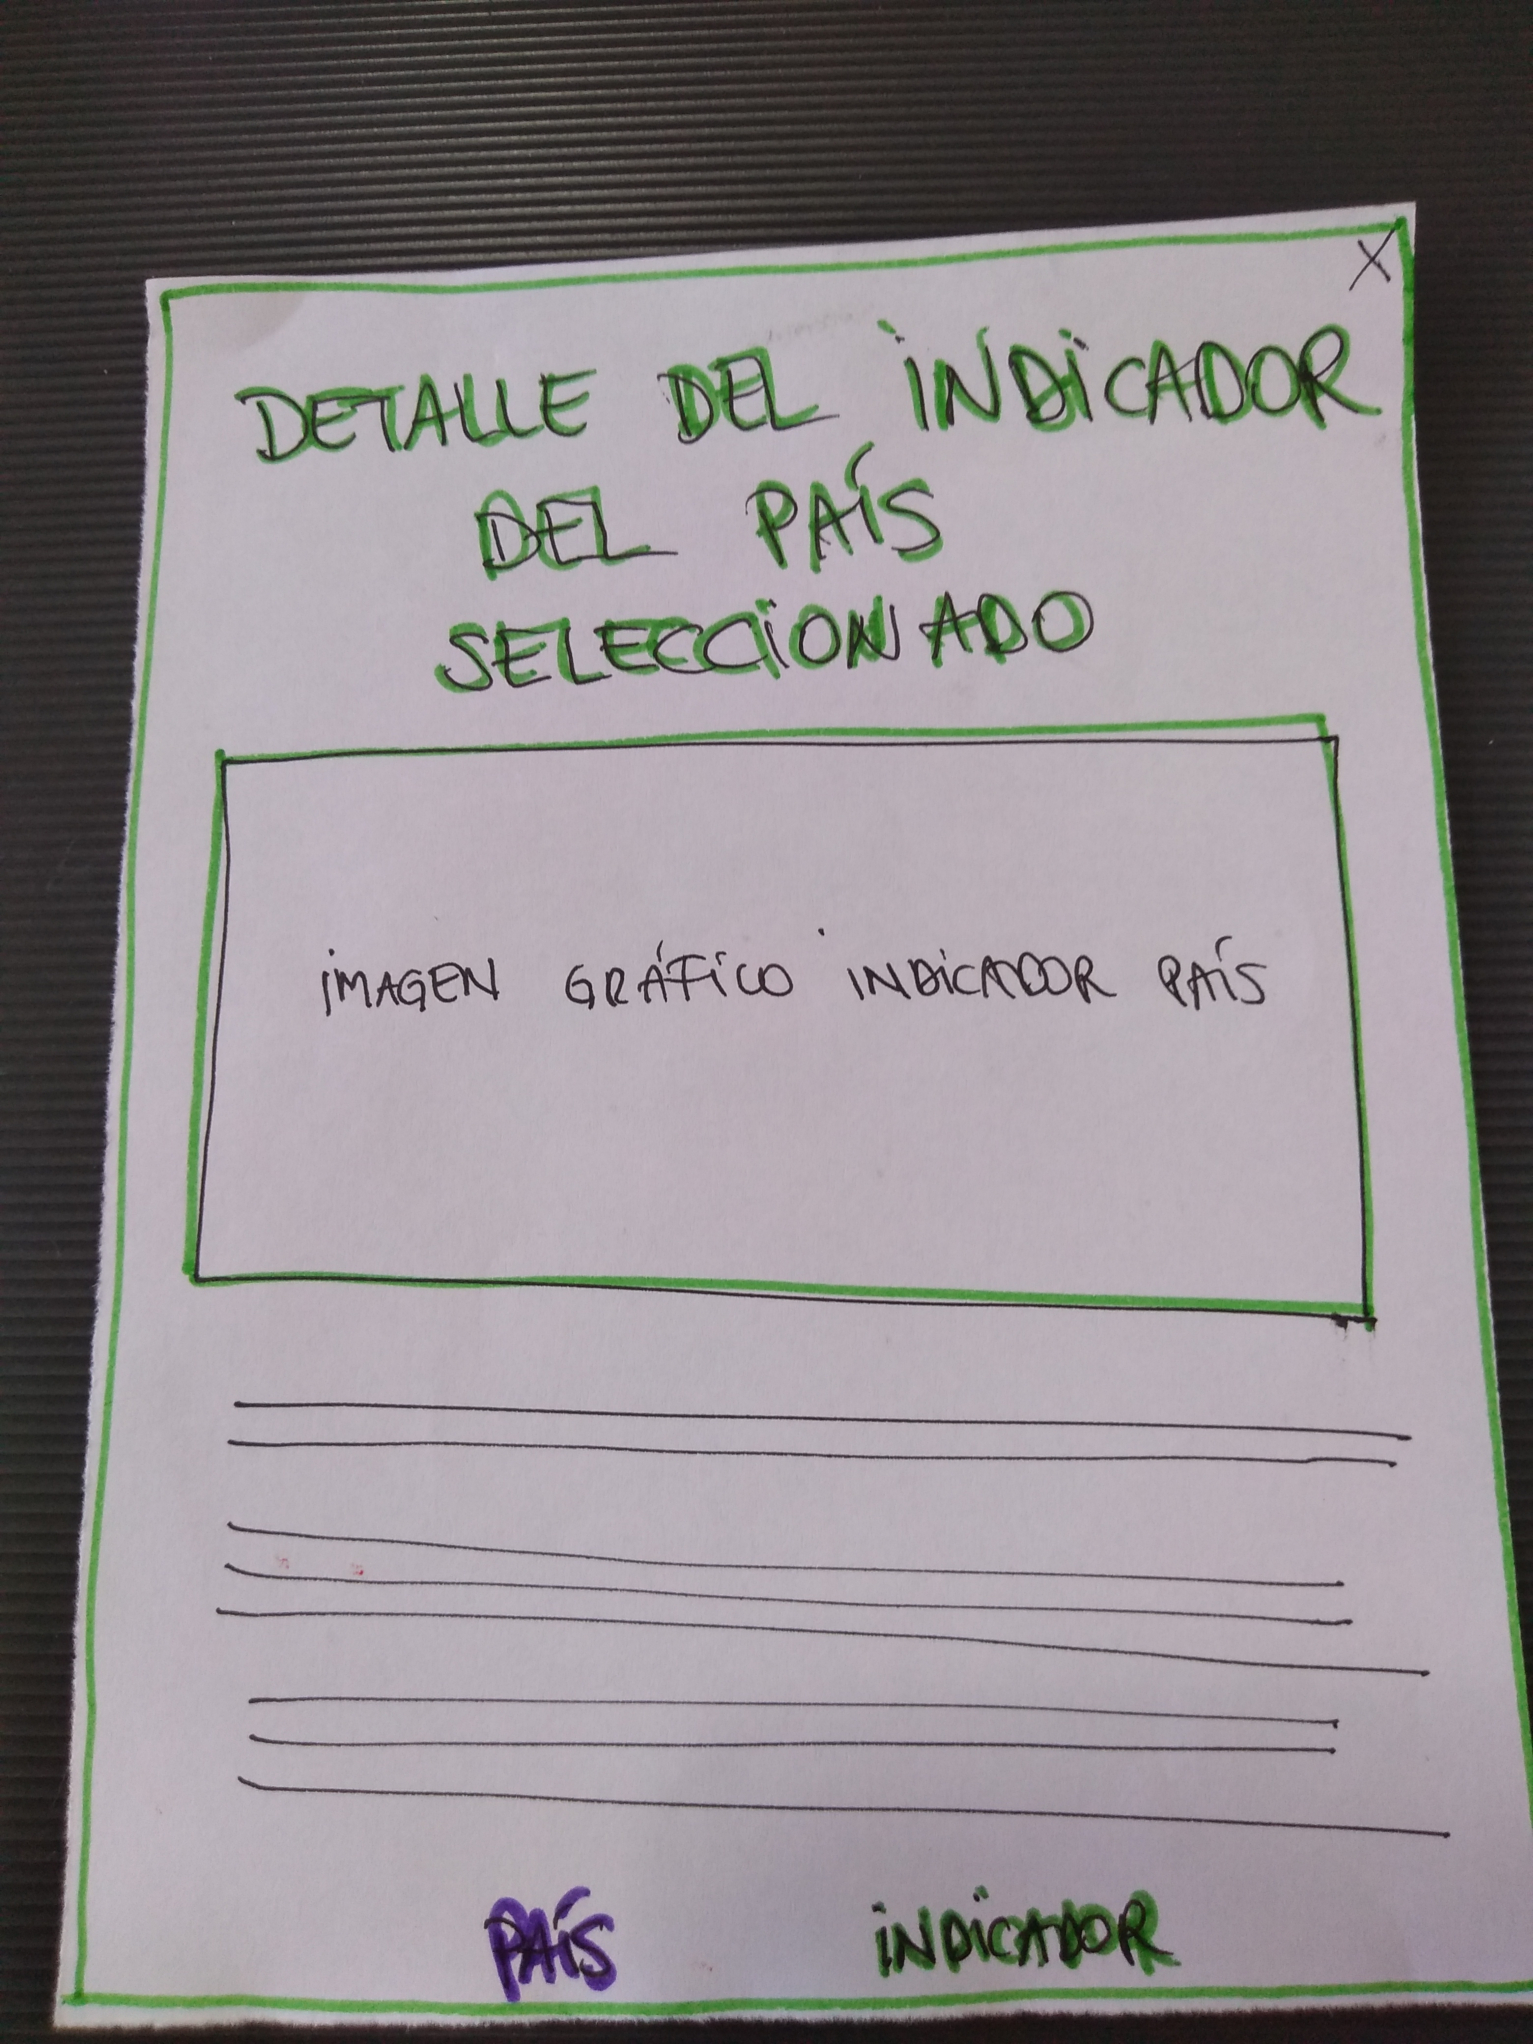 X
DETALLE DEL INDICADOR
DEL PAÍS
SELECCIONADO
IMAGEN GRÁFICO INDICADOR PAÍS
PAÍS INDICADOR